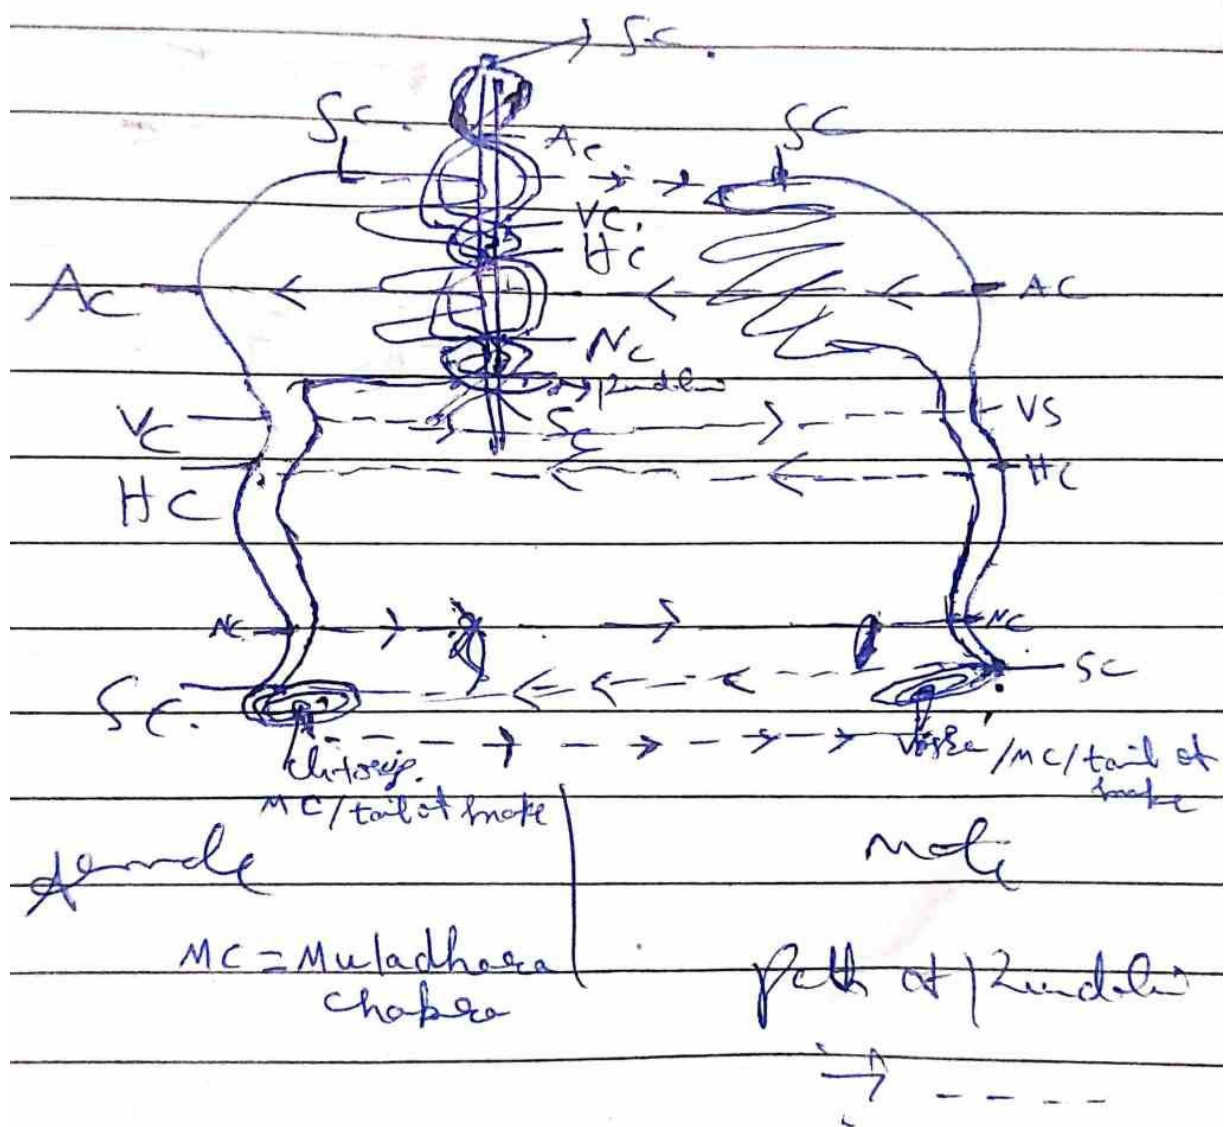 SC.
SC.
SC
AC
VC.
HC
AC
AC
NC
Kundalini
VC
SC
VS
HC
HC
NC
NC
SC.
SC
Clitoris.
MC/tail of snake
/MC/tail of
snake
female
Male
MC = Muladhara
Chakra
Path of Kundalini